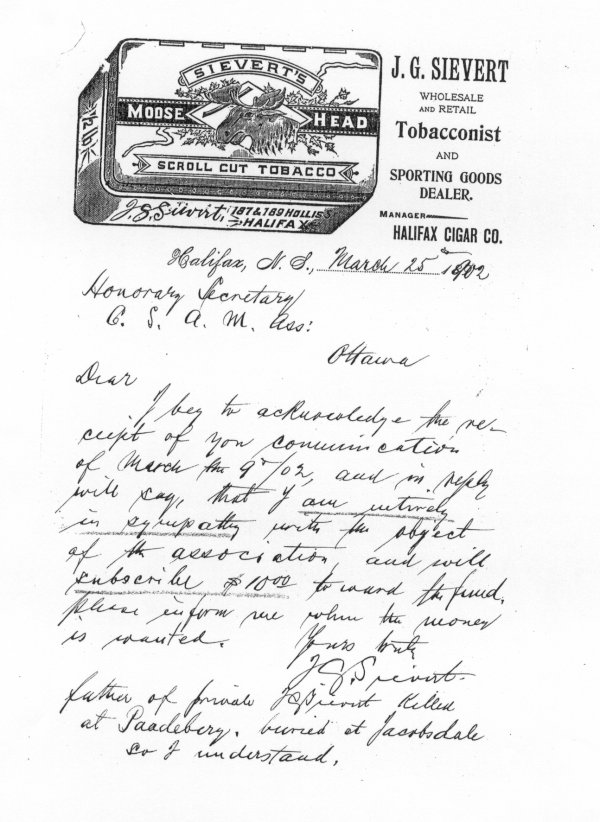 SIEVERT'S
MOOSE HEAD
SCROLL CUT TOBACCO
1/2 lb
J. G. Sievert, 187 & 189 HOLLIS S
HALIFAX
J. G. SIEVERT
WHOLESALE
AND RETAIL
Tobacconist
AND
SPORTING GOODS
DEALER.
MANAGER
HALIFAX CIGAR CO.
Halifax, N. S., March 25th 1902
Honorary Secretary
C. S. A. M. Ass:
Ottawa
Dear
I beg to acknowledge the re-
ceipt of you communication
of March the 9th/02, and in reply
will say, that I am intirely
in sympathy with the object
of the association, and will
subscribe $10.00 toward the fund.
please inform me when the money
is wanted. Yours truly
J. G. Sievert.
father of private Sievert Killed
at Paadeberg. buried at Jacobsdale
so I understand.